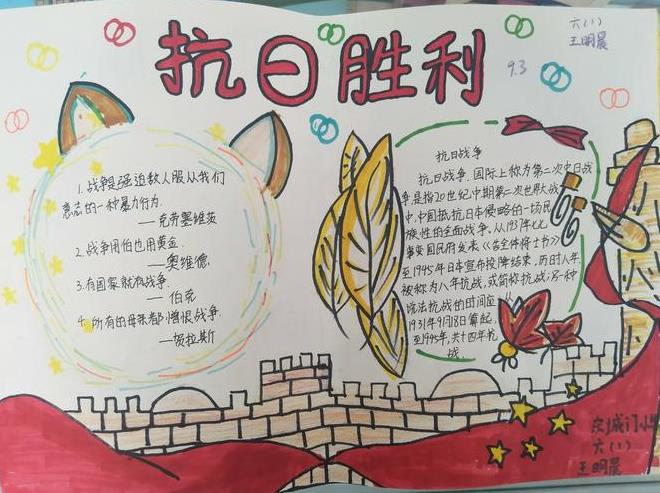 抗日胜利
六(1)
王明晨
9.3
1.战争是强迫敌人服从我们
意志的一种暴力行为.
——克劳塞维茨
2.战争用伯也用黄金.
——奥维德
3.有国家就有战争.
——伯克
4.所有的母亲都憎恨战争.
——贺拉斯
抗日战争
抗日战争,国际上称为第二次中日战
争.是指20世纪中期第二次世界大战
中,中国抵抗日本侵略的一场民
族性的全面战争,从1937年七七
事变国民府发表《告全体将士书》
至1945年日本宣布投降结束,历时八年,
被称为八年抗战,或简称抗战;另一种
说法抗战的时间应从
1931年9月18日算起,
至1945年,共十四年抗
战.
城门小学
六(1)
王明晨